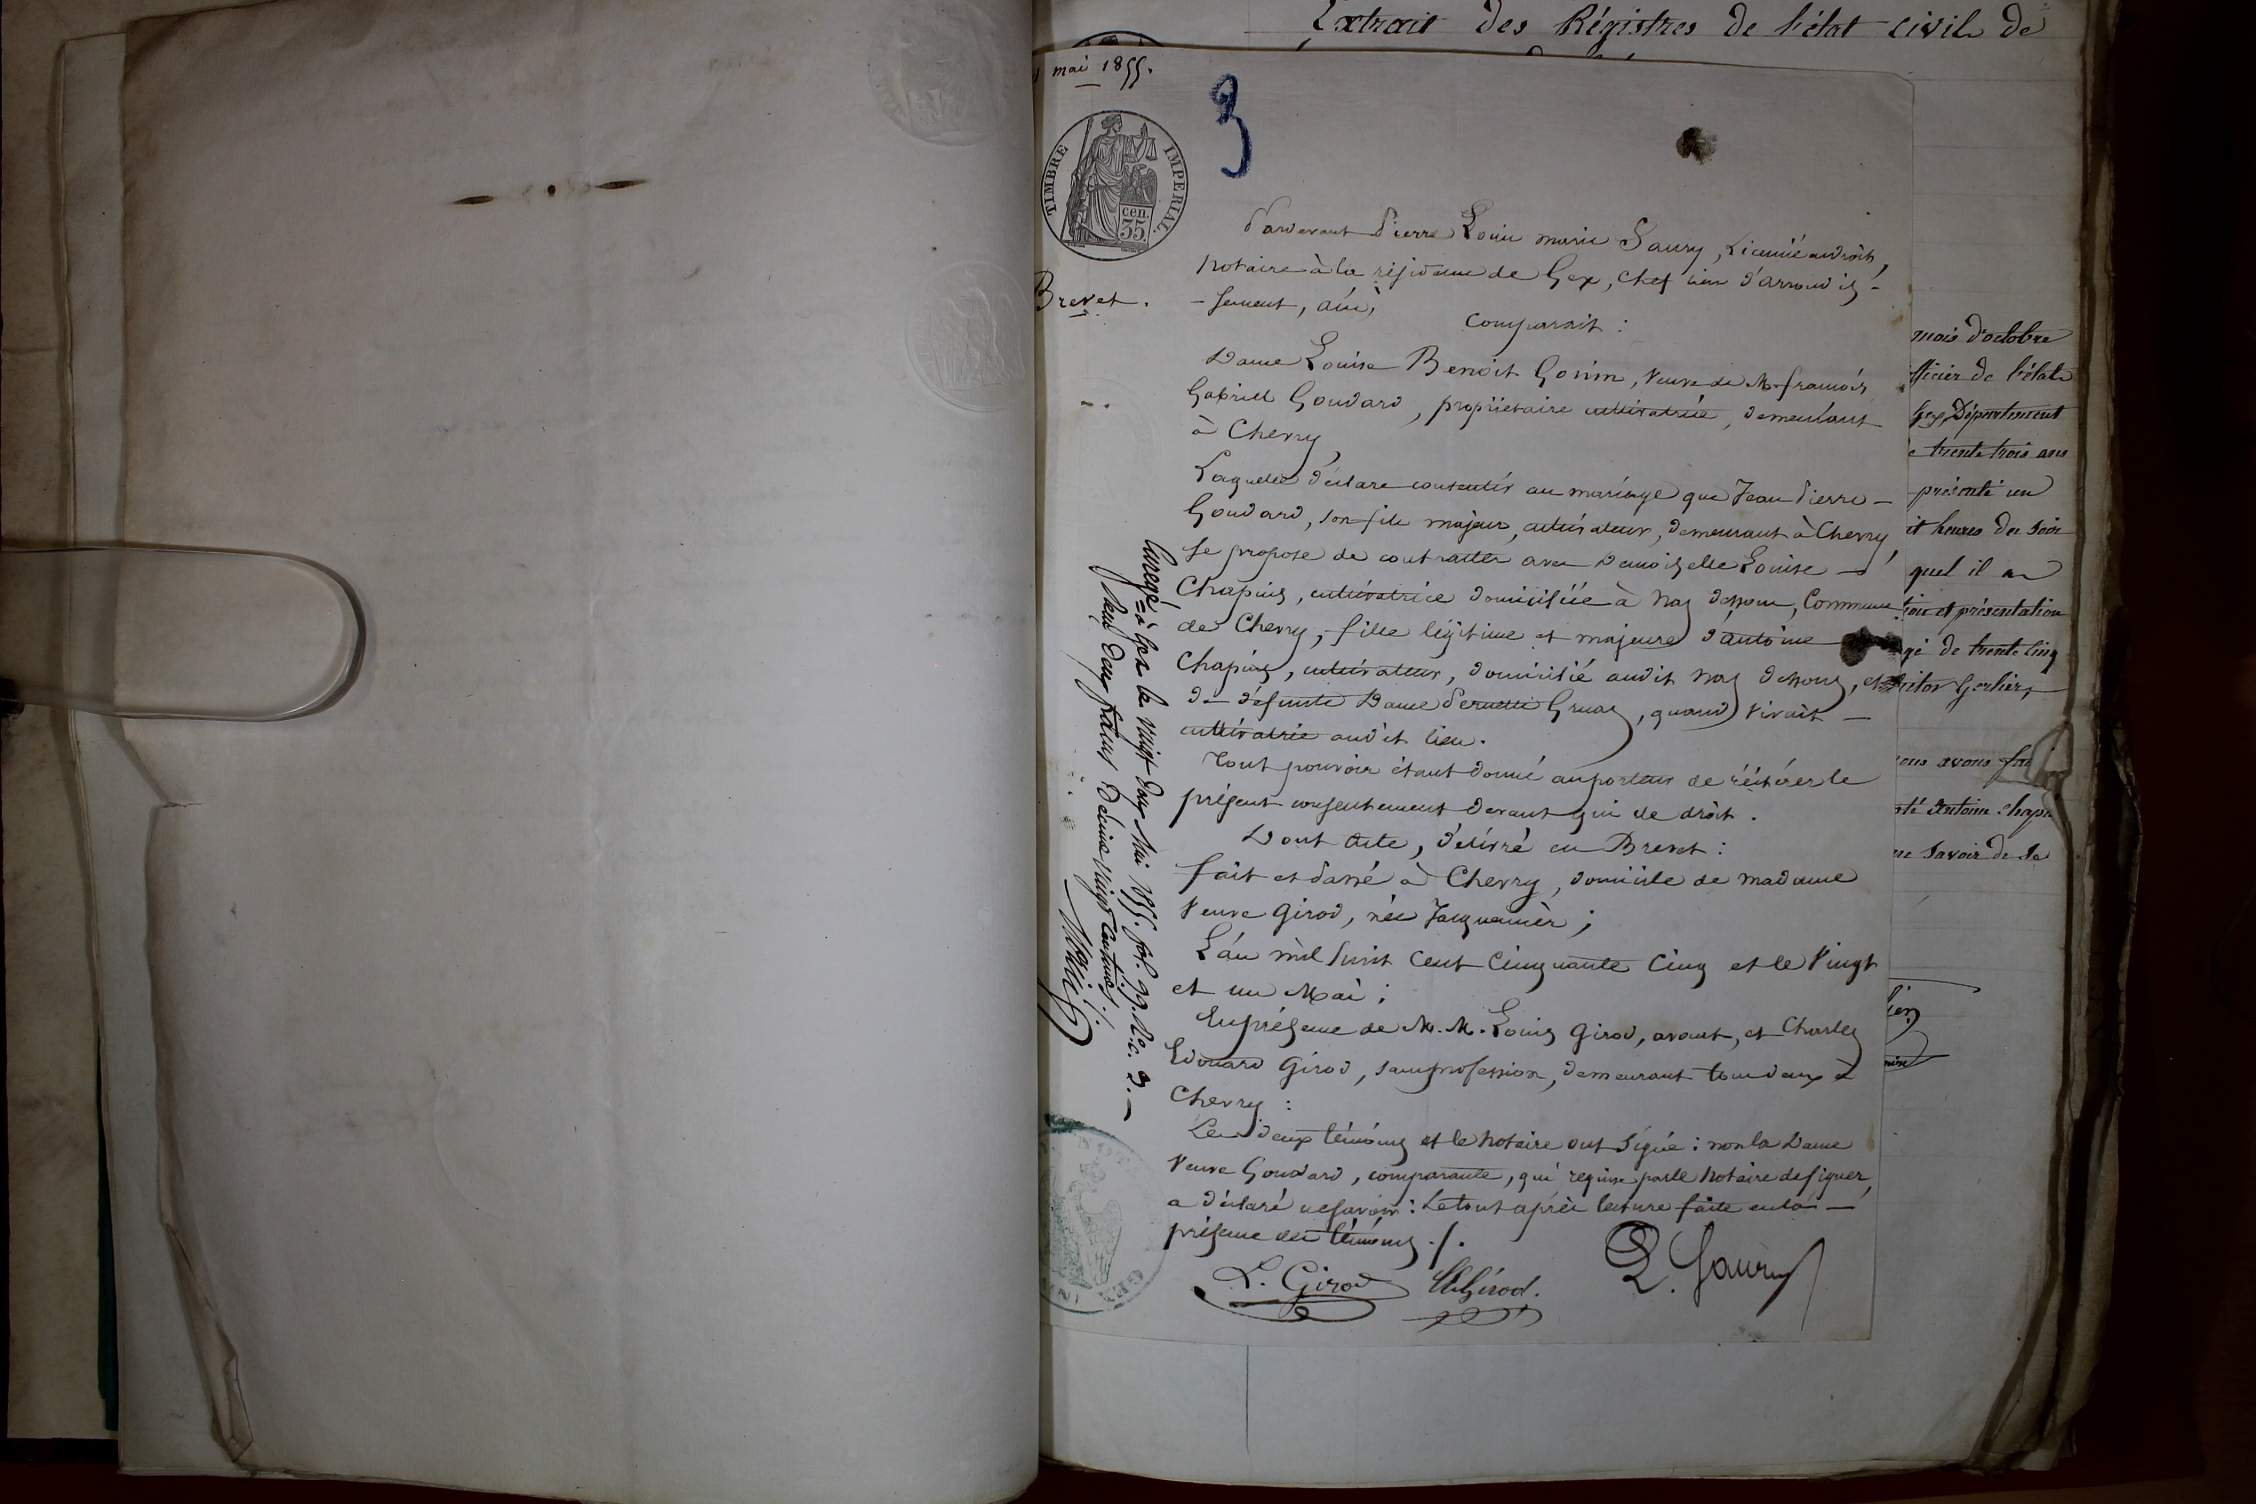 Extrait des Régistres de l'état civil de
mai 1855.
3
TIMBRE IMPERIAL.
cen.
35.
Brevet.
Pardevant Pierre Louis marie Saury, Licencié en droit,
Notaire à la résidence de Gex, chef lieu d'arrondis-
-sement, ain,
Comparait :
Dame Louise Benoit Gonin, Veuve de M. françois
Gabriel Goudard, propriétaire cultivatrice, demeurant
à Chevry,
Laquelle déclare consentir au mariage que Jean Pierre -
Goudard, son fils majeur, cultivateur, demeurant à Chevry,
se propose de contracter avec Demoiselle Louise -
Chapuis, cultivatrice domiciliée à Naz dessous, Commune
de Chevry, fille légitime et majeure d'antoine
Chapuis, cultivateur, domicilié audit Naz dessous, et
de défunte Dame Pernette Gruaz, quand vivait -
cultivatrice audit lieu.
Tout pouvoir étant donné au porteur de réitérer le
présent consentement devant qui de droit.
Dont Acte, délivré en Brevet :
fait et Passé à Chevry, domicile de madame
Veuve Girod, née Jacquemier ;
L'an mil huit cent cinquante cinq et le Vingt
et un Mai ;
En présence de M. M. Louis Girod, avocat, et Charles
Edouard Girod, sans profession, demeurant tous deux à
Chevry :
Les deux témoins et le Notaire ont signé : non la Dame
Veuve Goudard, comparante, qui requise par le Notaire de signer,
a déclaré ne savoir : Le tout après lecture faite en la -
présence des témoins ./.
L. Girod
CE Girod.
L. Saury
Enregé = à Gex le Vingt deux Mai 1855. fol. 99. Ro. c. 3. -
Reçu deux francs Décime vingt Centimes ./.
GEX
mois d'octobre
officier de l'état
Gex, Département
trente trois ans
présenté un
heures du soir
quel il a
et présentation
de trente cinq
Gerlier,
avons
Antoine Chapu
savoir de